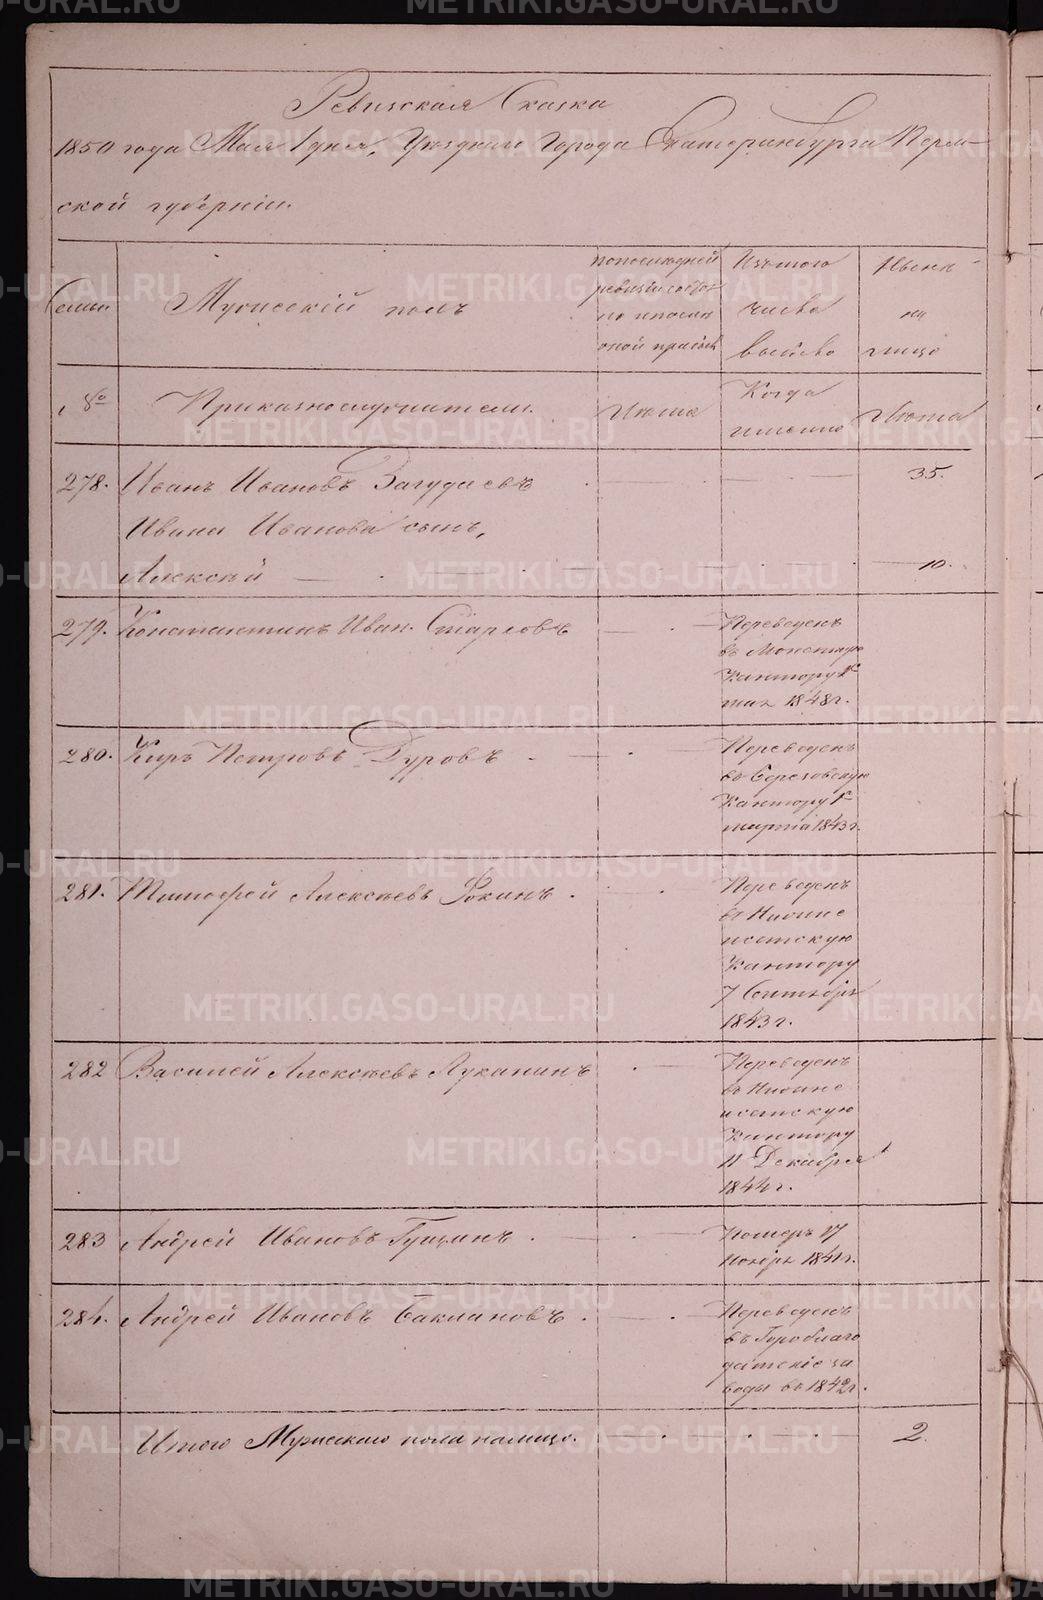 Ревизская Сказка
1850 года Мая 1 дня, Уезднаго Города Екатеринбурга Перм-
ской губернiи.
Семьи
Мужескiй полъ
по последней
ревизiи состоя
ло и после
оной прибы
Изъ того
числа
выбыло
Ныне
на
лицо
№
Приказнослужители.
Лета
Когда
именно
Лета
278. Иванъ Ивановъ Загудаевъ 35.
Ивана Иванова сынъ,
Алексей 10.
279. Константинъ Иван. Старковъ
Переведенъ
въ Монетную
Кантору
1848 г.
280. Киръ Петровъ Дуровъ
Переведенъ
въ Березовскую
Кантору 1
марта 1843 г.
281. Тимофей Алексеевъ Фокинъ
Переведенъ
въ Нижне
исетскую
Кантору
7 Сентября
1843 г.
282 Василей Алексеевъ Луканинъ
Переведенъ
въ Нижне
исетскую
Кантору
11 Декабря
1844 г.
283 Андрей Ивановъ Гущинъ
Померъ 17
Ноября 1841 г.
284. Андрей Ивановъ Баклановъ
Переведенъ
въ Гороблаго
датскiе за
воды въ 1842 г.
Итого Мужескаго пола налицо. 2.
METRIKI.GASO-URAL.RU